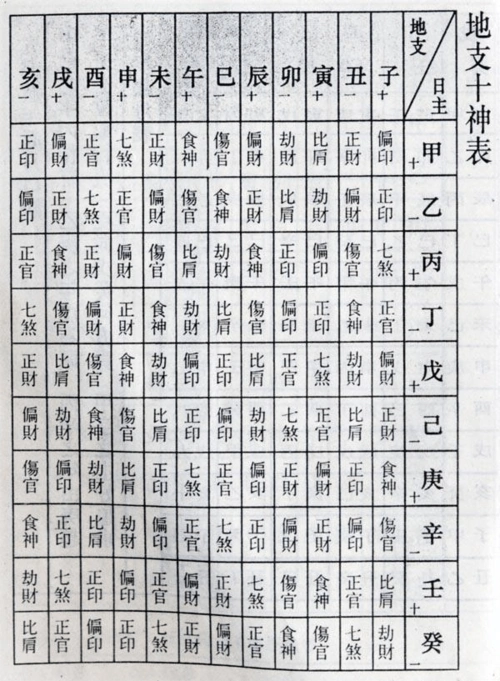 地支十神表
地支 日主
子+ 丑- 寅+ 卯- 辰+ 巳- 午+ 未- 申+ 酉- 戌+ 亥-
甲+ 偏印 正財 比肩 劫財 偏財 傷官 食神 正財 七煞 正官 偏財 正印
乙- 正印 偏財 劫財 比肩 正財 食神 傷官 偏財 正官 七煞 正財 偏印
丙+ 七煞 傷官 偏印 正印 食神 劫財 比肩 傷官 偏財 正財 食神 正官
丁- 正官 食神 正印 偏印 傷官 比肩 劫財 食神 正財 偏財 傷官 七煞
戊+ 偏財 劫財 七煞 正官 比肩 正印 偏印 劫財 食神 傷官 比肩 正財
己- 正財 比肩 正官 七煞 劫財 偏印 正印 比肩 傷官 食神 劫財 偏財
庚+ 食神 正印 偏財 正財 偏印 正官 七煞 正印 比肩 劫財 偏印 傷官
辛- 傷官 偏印 正財 偏財 正印 七煞 正官 偏印 劫財 比肩 正印 食神
壬+ 比肩 正官 食神 傷官 七煞 正財 偏財 正官 偏印 正印 七煞 劫財
癸- 劫財 七煞 傷官 食神 正官 偏財 正財 七煞 正印 偏印 正官 比肩